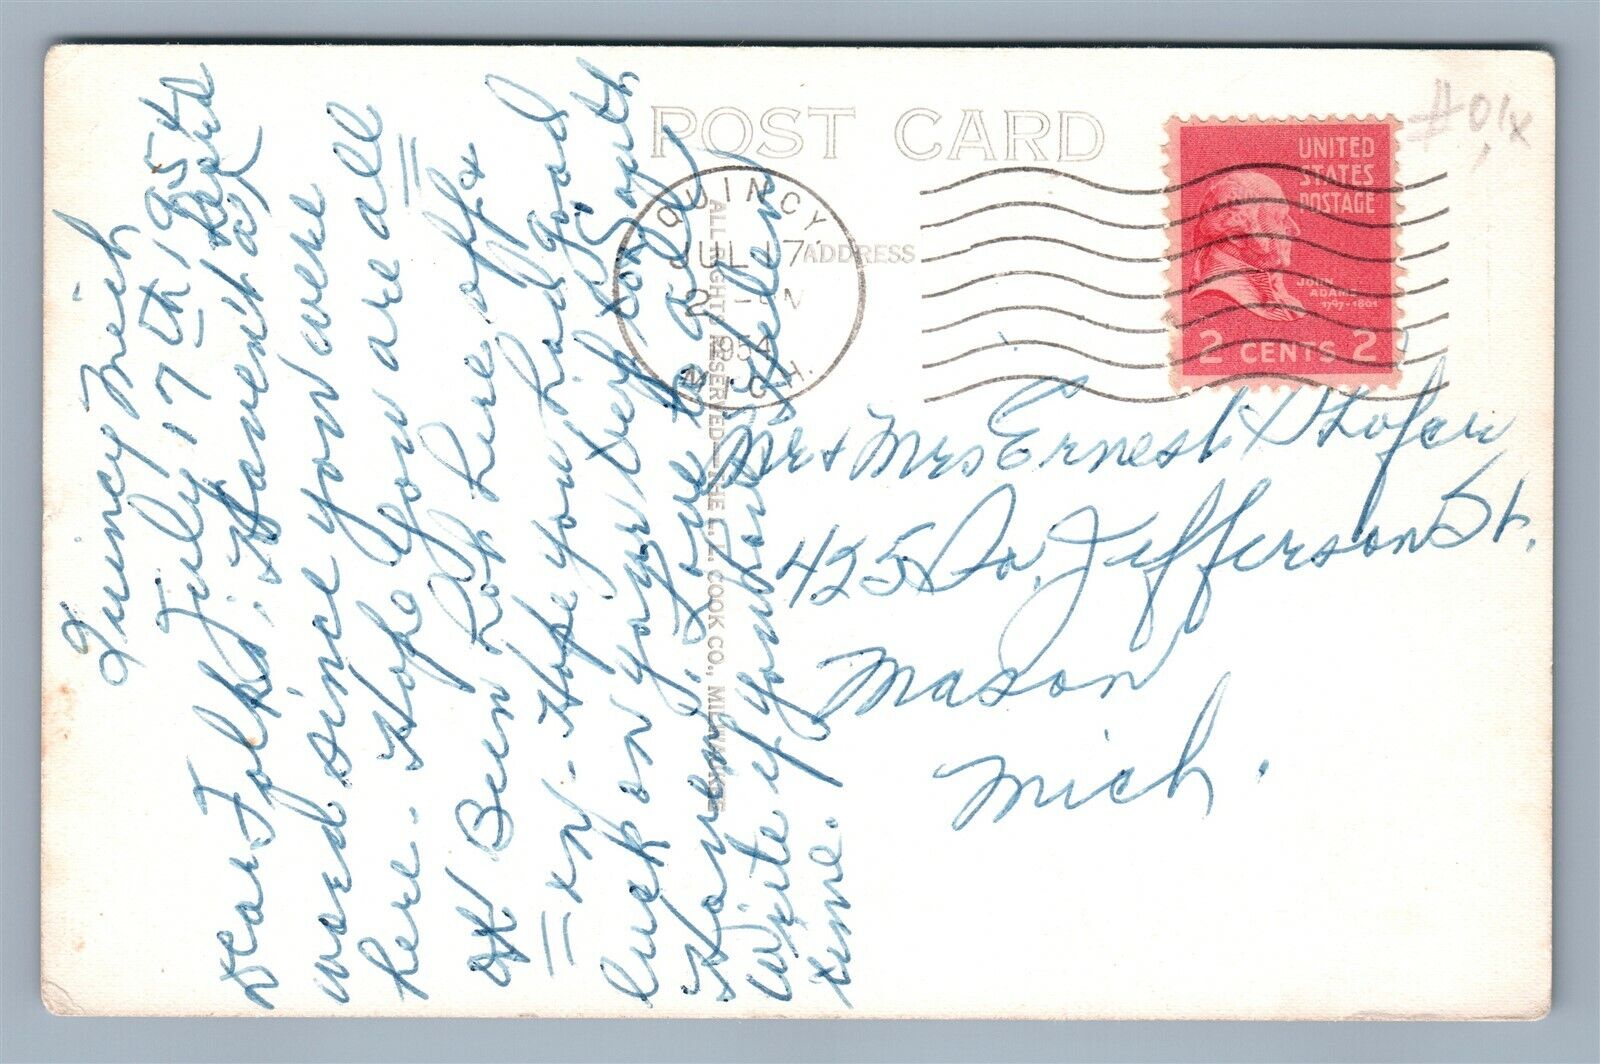 Quincy Mich
July 17th, 1954
Dear Folks; Havent heard a
word since you were
here - Hope you are all
OK! Been hot here off &
on. Hope you had good
luck on your trip South
Love to all
Write if you have
time.
POST CARD
ADDRESS
ALL RIGHTS RESERVED—THE L. L. COOK CO., MILWAUKEE
QUINCY,
JUL 17
2 - PM
1954
MICH.
UNITED
STATES
POSTAGE
JOHN
ADAMS
1797-1801
2 CENTS 2
Mr & Mrs Ernest
425 So. Jefferson St.
Mason
Mich.